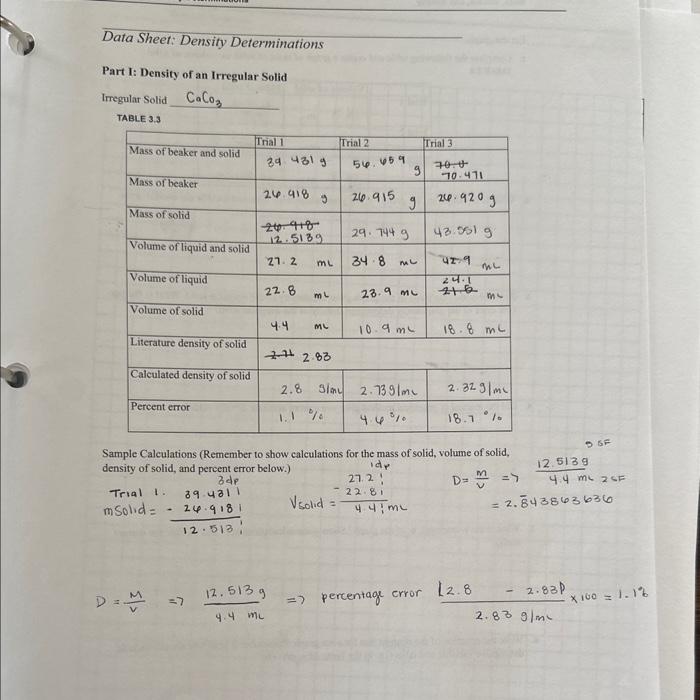 Data Sheet: Density Determinations
Part I: Density of an Irregular Solid
Irregular Solid CaCo3
TABLE 3.3
Trial 1 Trial 2 Trial 3
Mass of beaker and solid 39.431 g 56.659 g 70.0 70.471
Mass of beaker 26.918 g 26.915 g 26.920 g
Mass of solid 26.918 12.513g 29.744 g 43.551 g
Volume of liquid and solid 27.2 mL 34.8 mL 42.9 mL
Volume of liquid 22.8 mL 23.9 mL 24.1 mL
Volume of solid 4.4 mL 10.9 mL 18.8 mL
Literature density of solid 2.71 2.83
Calculated density of solid 2.8 g/mL 2.73g/mL 2.32g/mL
Percent error 1.1 % 4.6 % 18.7 %
Sample Calculations (Remember to show calculations for the mass of solid, volume of solid,
density of solid, and percent error below.)
Trial 1.
3dp
msolid = 39.431
- 26.918
12.513
1dp
Vsolid = 27.2
- 22.8
4.4 mL
5 SF
D = m/v => 12.513g / 4.4 mL 2SF
= 2.843863636
D = M/V => 12.513 g / 4.4 mL => percentage error |2.8 - 2.83| / 2.83 g/mL x 100 = 1.1%